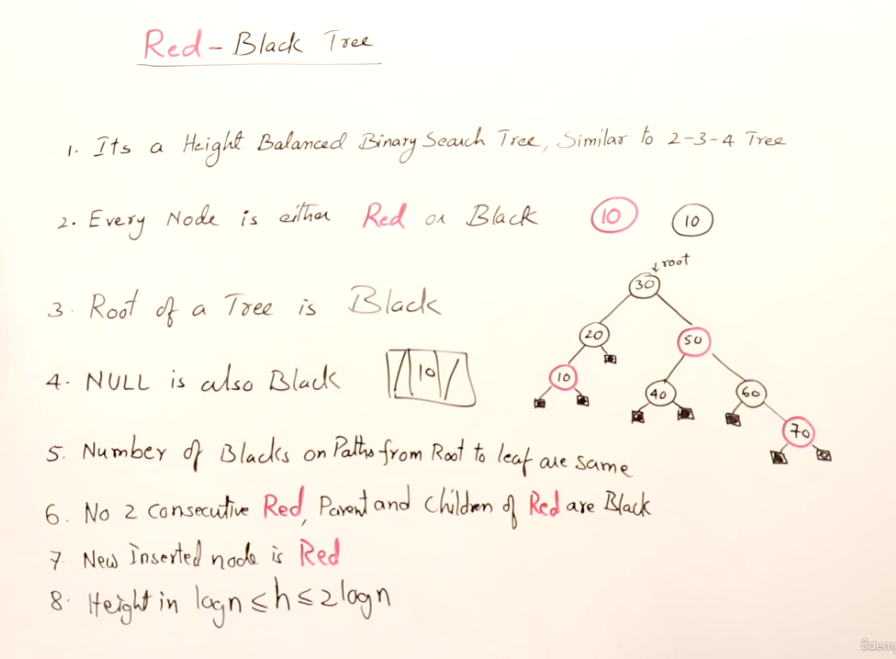 Red - Black Tree
1. Its a Height Balanced Binary Search Tree, Similar to 2-3-4 Tree
2. Every Node is either Red or Black
10
10
root
30
3. Root of a Tree is Black
20
50
4. NULL is also Black
10
10
40
60
70
5. Number of Blacks on Paths from Root to leaf are same
6. No 2 Consecutive Red, Parent and Children of Red are Black
7. New Inserted node is Red
8. Height in logn ≤ h ≤ 2logn